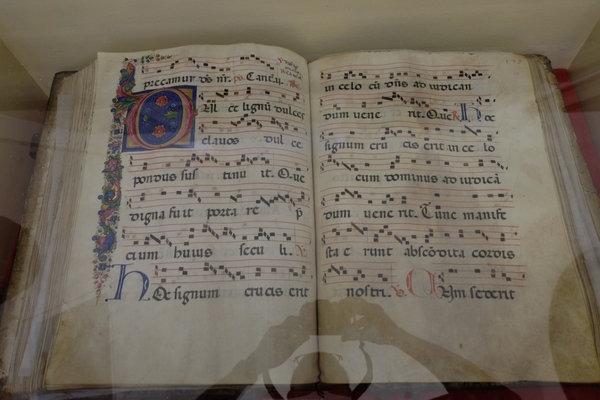 precamur ds nr. ps. Cant.
Dul ce lignū dulces
clauos dul ce
pondus sus tinu it. Que
digna fuit porta re p̄
cium huius secu li. ℣.
Hoc signum crucis erit
in celo cū dn̄s ad iudican
dum uene rit. Que ℟. Hoc
signum cru cis erit in ce lo
cum dominus ad iudicā
dum uene rit. Tunc manife
sta e runt abscondita cordis
nostri. ℣. Cum sederit